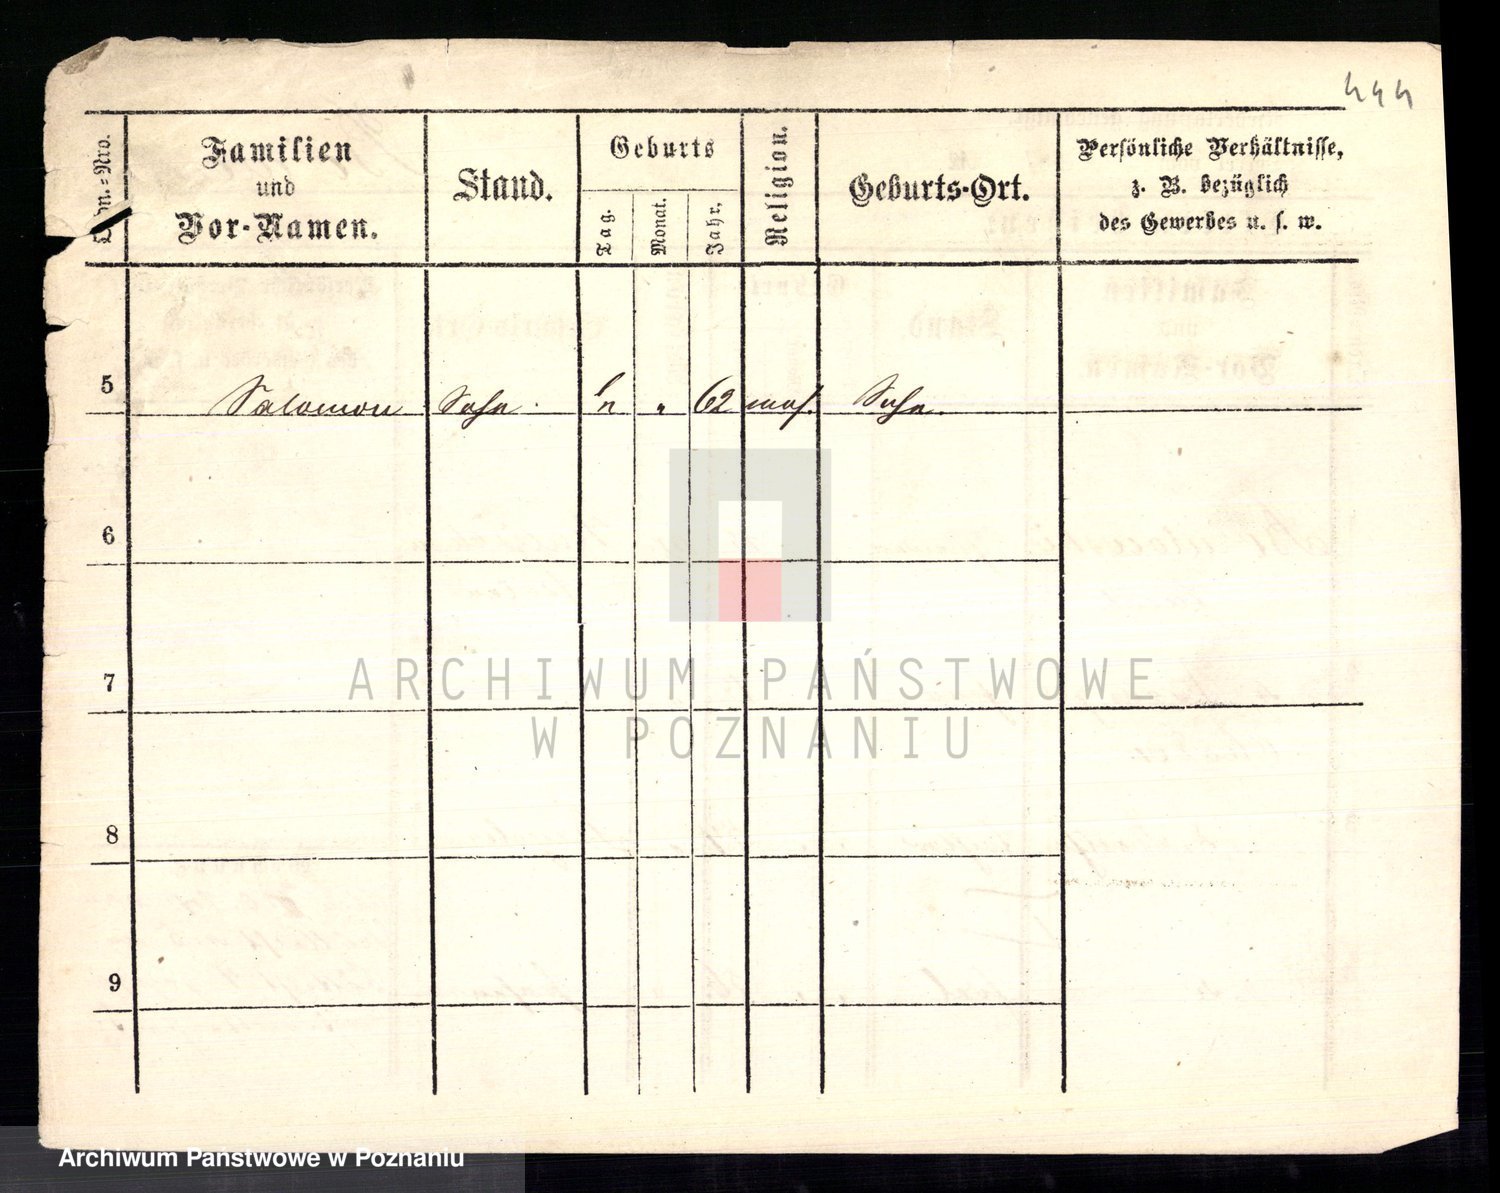 444
Lfdn.-Nro.
Familien
und
Vor-Namen.
Stand.
Geburts
Tag.
Monat.
Jahr.
Religion.
Geburts-Ort.
Persönliche Verhältnisse,
z. B. bezüglich
des Gewerbes u. s. w.
5 Salomon Sohn. 62 mos.
6
7
8
9
ARCHIWUM PAŃSTWOWE
W POZNANIU
Archiwum Państwowe w Poznaniu